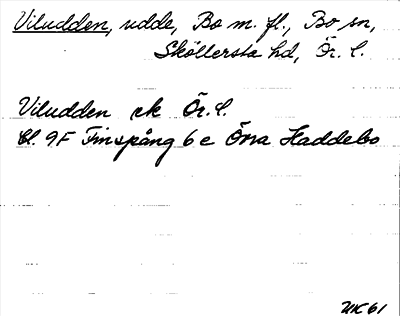 Viludden, udde, Bo m. fl., Bo sn,
Sköllersta hd, Ör. l.
Viludden ek Ör. l.
Bl. 9F Finspång 6e Östra Haddebo
NK 61